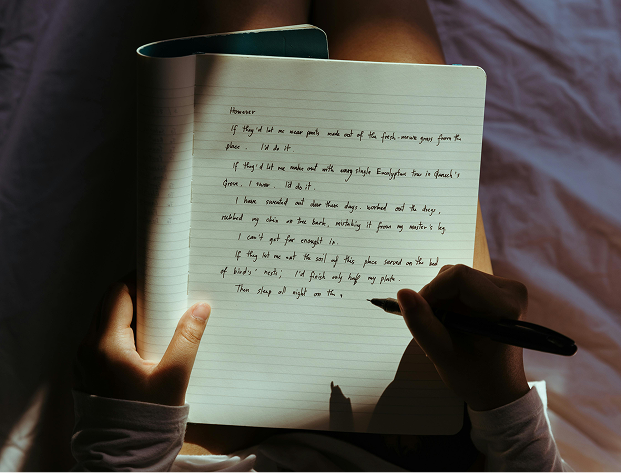 However
If they'd let me wear pants made out of the fresh-mown grass from the
place. I'd do it.
If they'd let me make out with every single Eucalyptus tree in Quaech's
Grove. I swear. I'd do it.
I have sweated out dew these days. worked out the dregs,
rubbed my chin on tree bark, mistaking it from my master's leg.
I can't get far enough in.
If they let me eat the soil of this place served on the bed
of bird's' nests; I'd finish only half my plate.
Then sleep all night on the